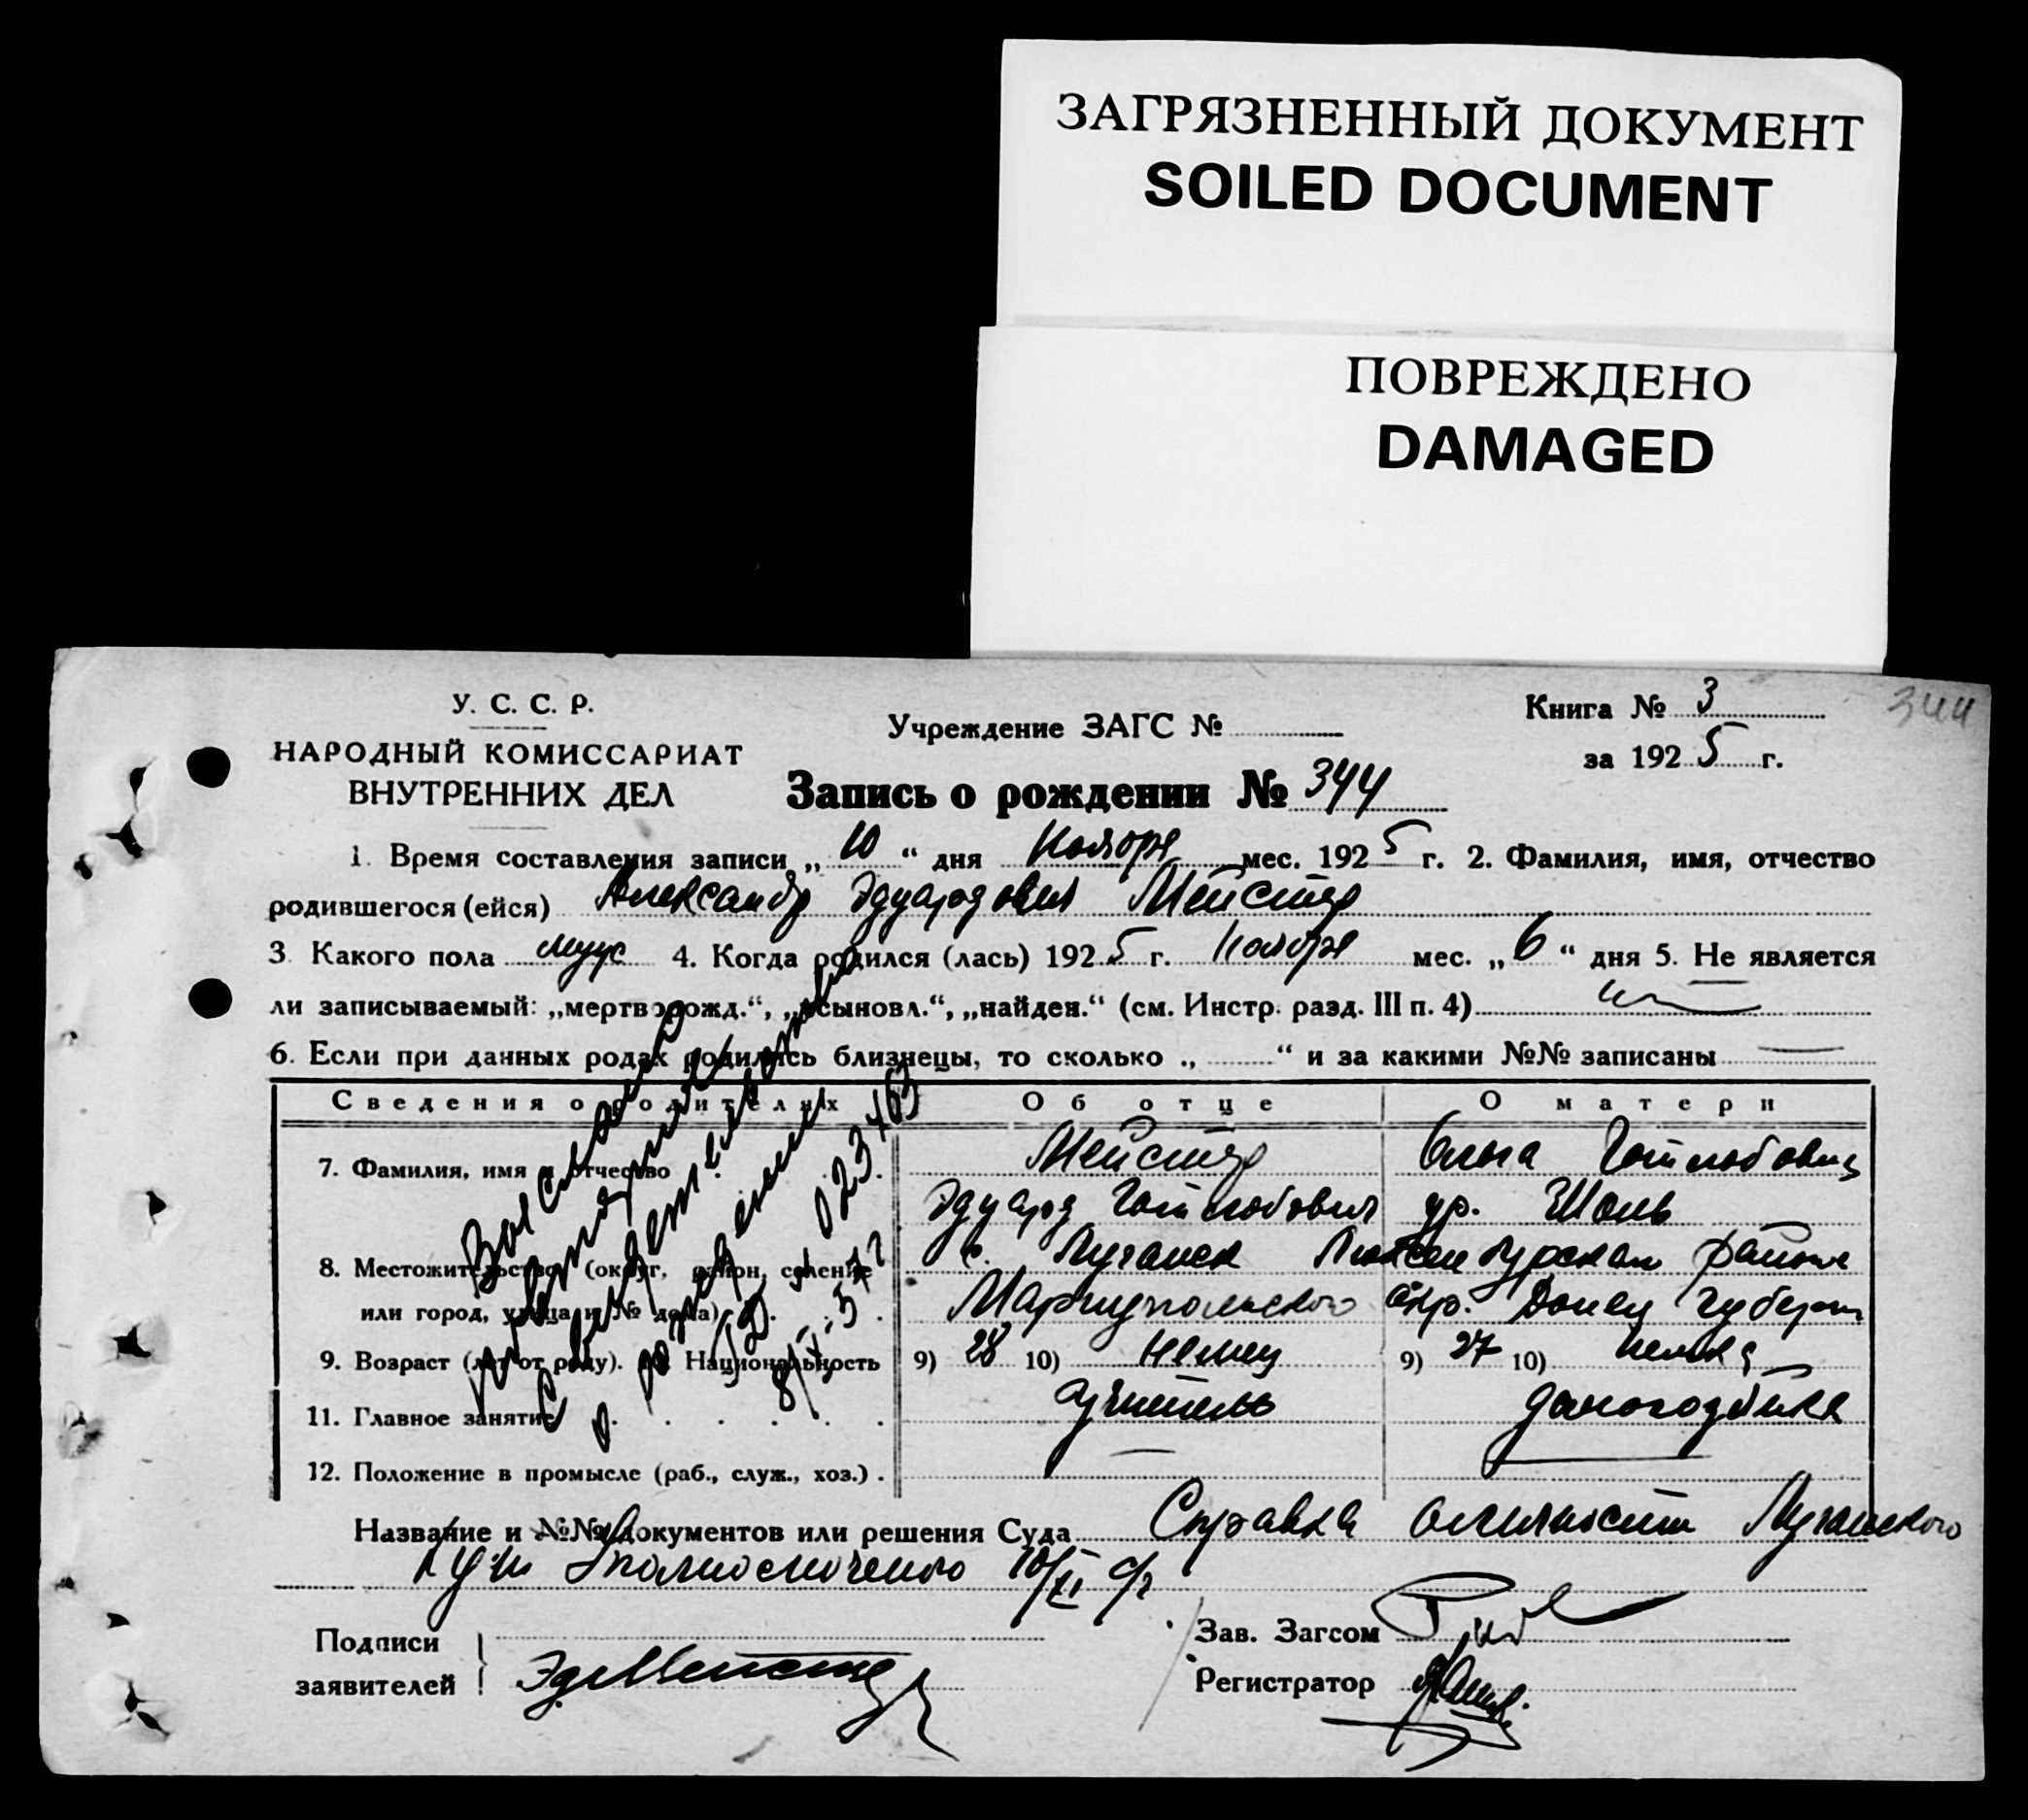 ЗАГРЯЗНЕННЫЙ ДОКУМЕНТ
SOILED DOCUMENT
ПОВРЕЖДЕНО
DAMAGED
344
У. С. С. Р.
НАРОДНЫЙ КОМИССАРИАТ
ВНУТРЕННИХ ДЕЛ
Учреждение ЗАГС №
Книга № 3
за 1925 г.
Запись о рождении № 344
1. Время составления записи „10“ дня Ноября мес. 1925 г. 2. Фамилия, имя, отчество
родившегося (ейся) Александр Эдуардович Мейстер
3. Какого пола муж 4. Когда родился (лась) 1925 г. Ноября мес. „6“ дня 5. Не является
ли записываемый: „мертворожд.“, „усыновл.“, „найден.“ (см. Инстр. разд. III п. 4)
6. Если при данных родах родились близнецы, то сколько „ “ и за какими №№ записаны
Сведения о родителях Об отце О матери
7. Фамилия, имя и отчество Мейстер Ольга Готлобовна
Эдуард Готлобович ур. Шоль
8. Местожительство (округ, район, селение с. Луганск Люксембургского района
или город, улица и № дома) Мариупольского окр. Донец губерн
9. Возраст (лет от роду). 10. Национальность 9) 28 10) немец 9) 27 10) немка
11. Главное занятие учитель домохозяйка
12. Положение в промысле (раб., служ., хоз.)
Выслано
свидет.
о рождении
023463
Название и №№ документов или решения Суда Справка о личности Луганского
Уполномоченого 10/XI с/г
Подписи
заявителей Эд Мейстер
Зав. Загсом
Регистратор